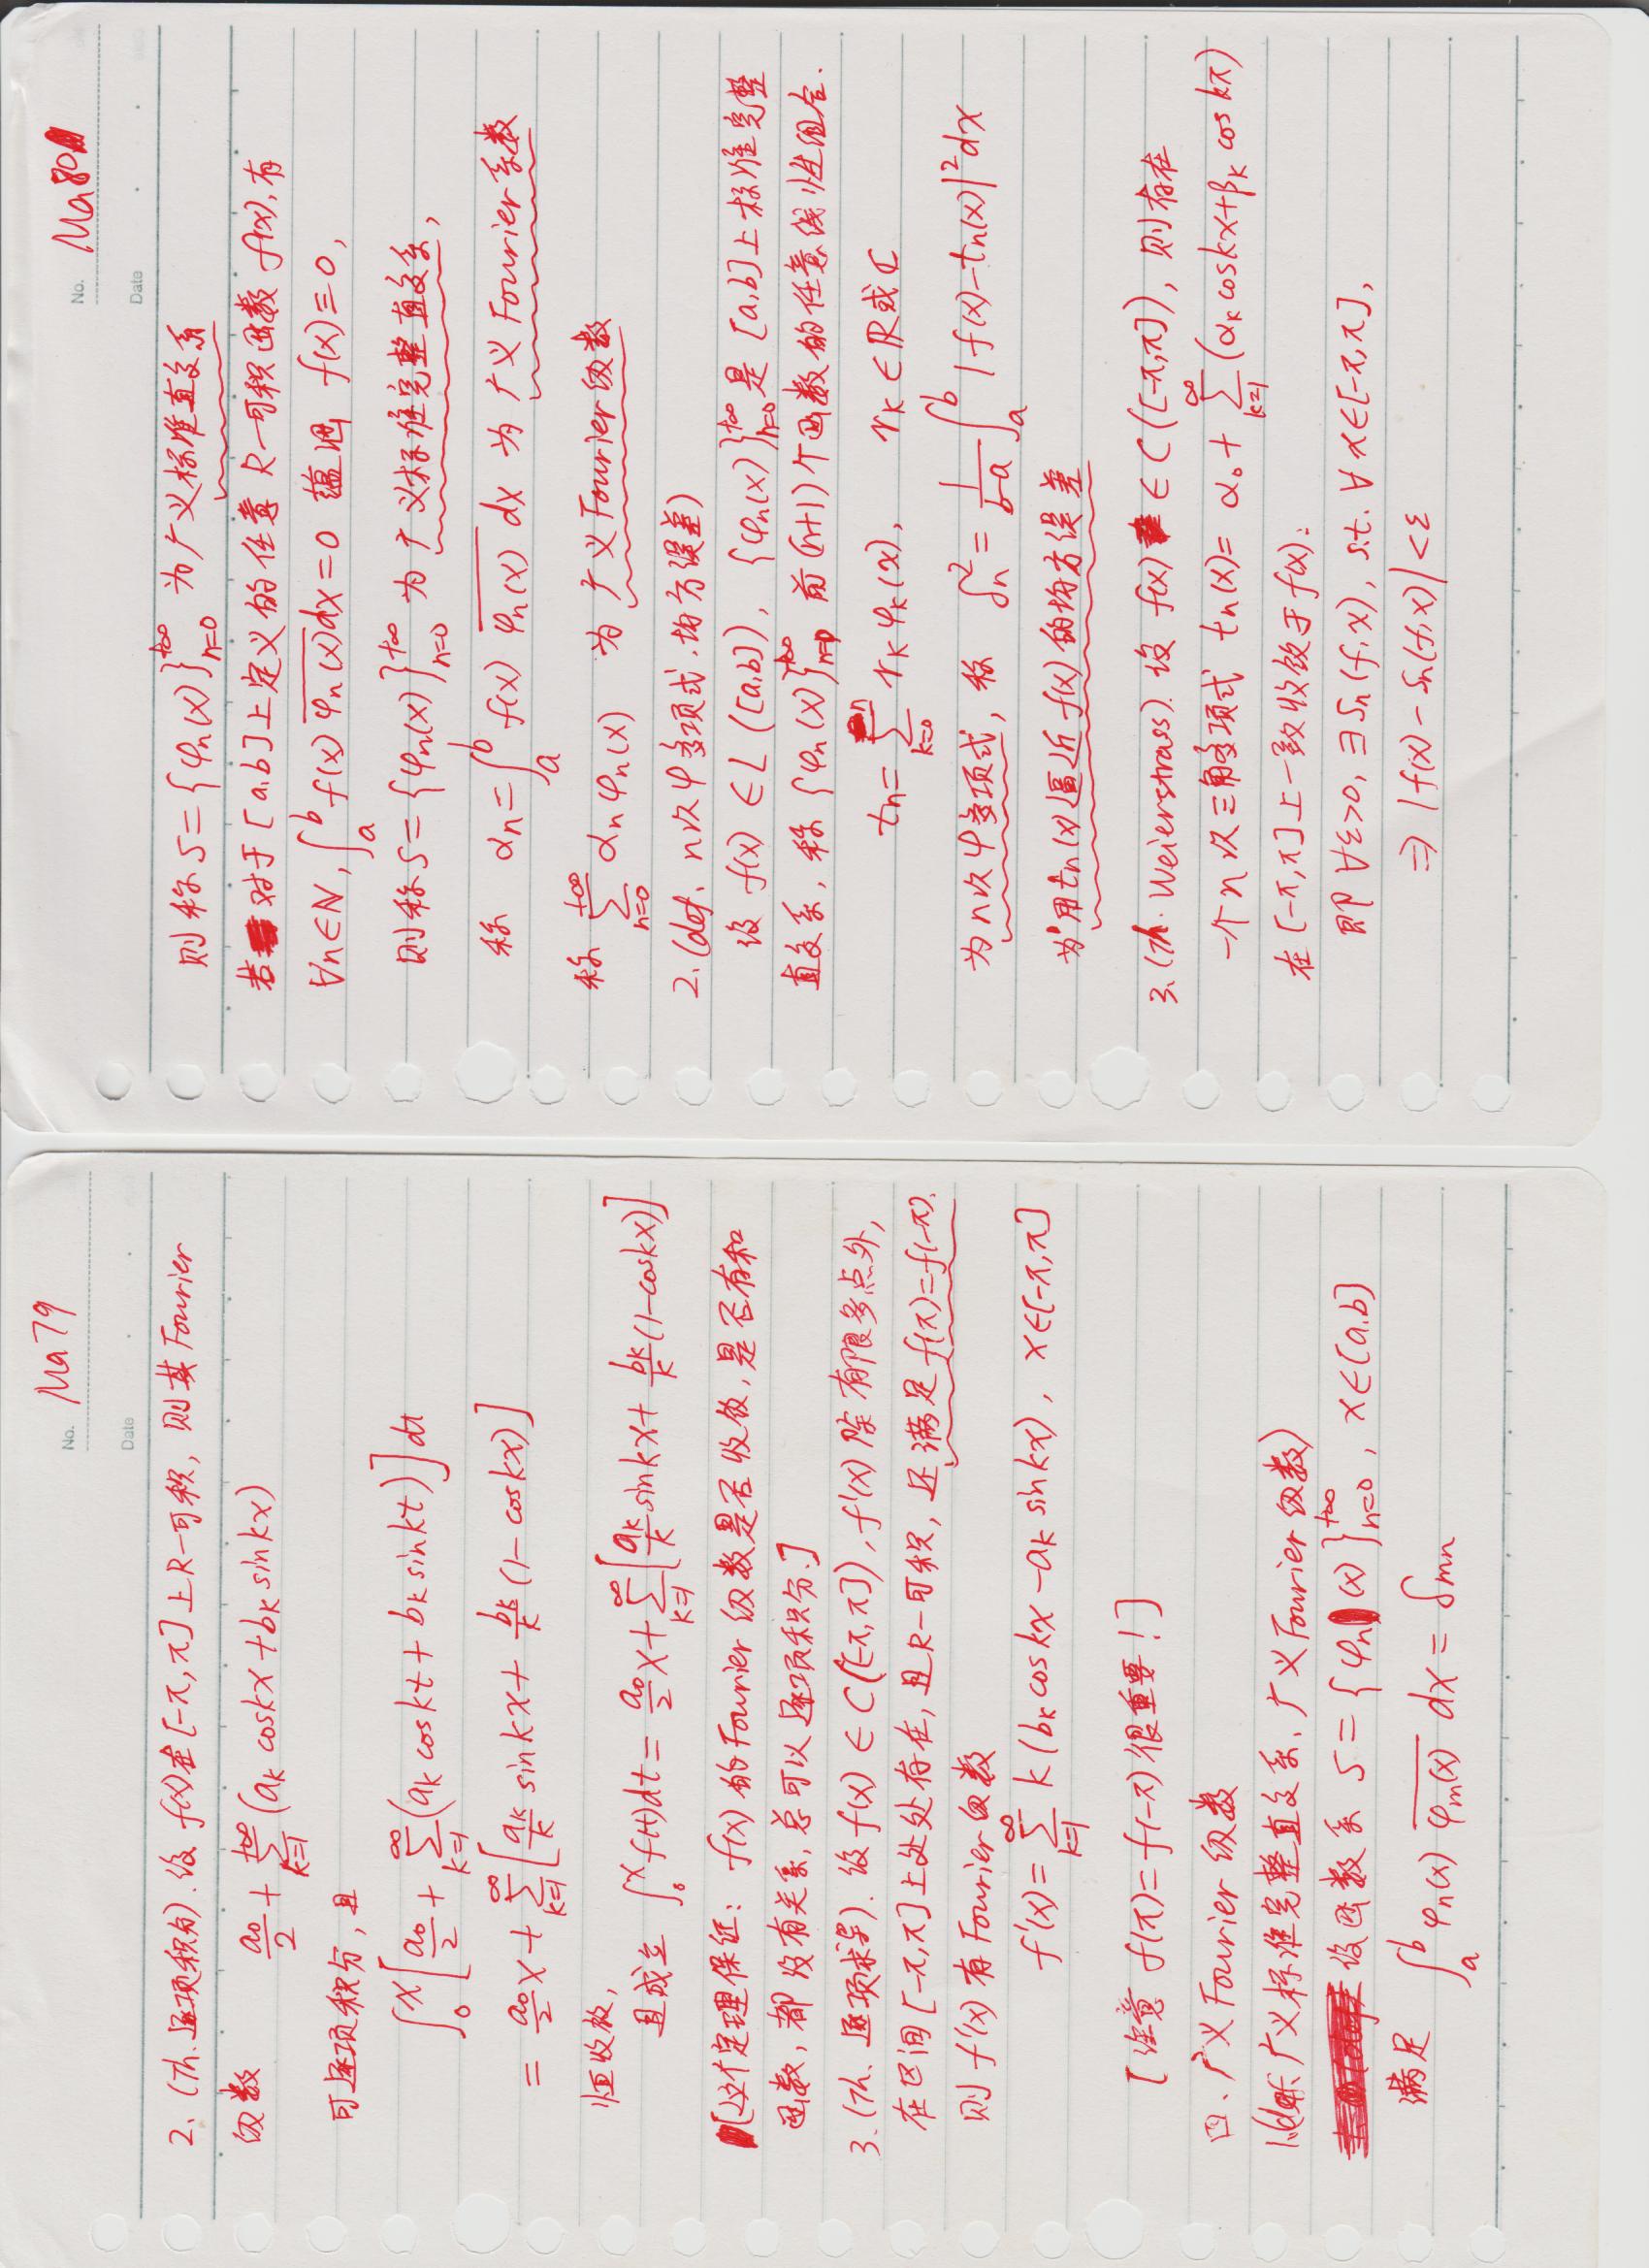 No. Ma79
Date
2. (Th. 逐项积分). 设 f(x) 在 [-π, π] 上 R-可积, 则其 Fourier
级数 a₀/2 + ∑_{k=1}^{+∞} (a_k cos kx + b_k sin kx)
可逐项积分, 且
∫_0^x [a₀/2 + ∑_{k=1}^{∞} (a_k cos kt + b_k sin kt)] dt
= a₀/2 x + ∑_{k=1}^{∞} [a_k/k sin kx + b_k/k (1 - cos kx)]
恒收敛,
且成立 ∫_0^x f(t)dt = a₀/2 x + ∑_{k=1}^{∞} [a_k/k sin kx + b_k/k (1-cos kx)]
[这个定理保证: f(x) 的 Fourier 级数是否收敛, 是否有和
函数, 都没有关系, 总可以逐项积分.]
3. (Th. 逐项求导). 设 f(x) ∈ C([-π, π]), f'(x) 除有限多点外,
在区间 [-π, π] 上处处存在, 且 R-可积, 还满足 f(π)=f(-π).
则 f'(x) 有 Fourier 级数
f'(x) = ∑_{k=1}^{∞} k (b_k cos kx - a_k sin kx), x∈[-π, π]
[注意 f(π)=f(-π) 很重要!]
四. 广义 Fourier 级数
1.(def. 广义标准完整直交系、广义 Fourier 级数)
设函数系 S = {φ_n(x)}_{n=0}^{+∞}, x∈[a,b]
满足 ∫_a^b φ_n(x) \overline{φ_m(x)} dx = δ_{mn}
No. Ma80
Date
则称 S = {φ_n(x)}_{n=0}^{+∞} 为广义标准直交系
若对于 [a,b] 上定义的任意 R-可积函数 f(x), 有
∀n∈N, ∫_a^b f(x) \overline{φ_n(x)} dx = 0 蕴涵 f(x) ≡ 0,
则称 S = {φ_n(x)}_{n=0}^{+∞} 为广义标准完整直交系,
称 α_n = ∫_a^b f(x) \overline{φ_n(x)} dx 为广义 Fourier 系数
称 ∑_{n=0}^{+∞} α_n φ_n(x) 为广义 Fourier 级数
2. (def. n次φ多项式. 均方误差)
设 f(x) ∈ L([a,b]), {φ_n(x)}_{n=0}^{+∞} 是 [a,b] 上标准完整
直交系, 称 {φ_n(x)}_{n=0}^{+∞} 前 (n+1) 个函数的任意线性组合.
t_n = ∑_{k=0}^{n} r_k φ_k(x), r_k ∈ ℝ或ℂ
为n次φ多项式, 称 δ_n² = 1/(b-a) ∫_a^b |f(x)-t_n(x)|² dx
为用 t_n(x) 逼近 f(x) 的均方误差
3. (Th. Weierstrass). 设 f(x) ∈ C([-π,π]), 则存在
一个n次三角多项式 t_n(x) = α₀ + ∑_{k=1}^{∞} (α_k cos kx + β_k cos kx)
在 [-π, π] 上一致收敛于 f(x):
即 ∀ε>0, ∃S_n(f,x), s.t. ∀x∈[-π,π],
⇒ |f(x) - S_n(f,x)| < ε